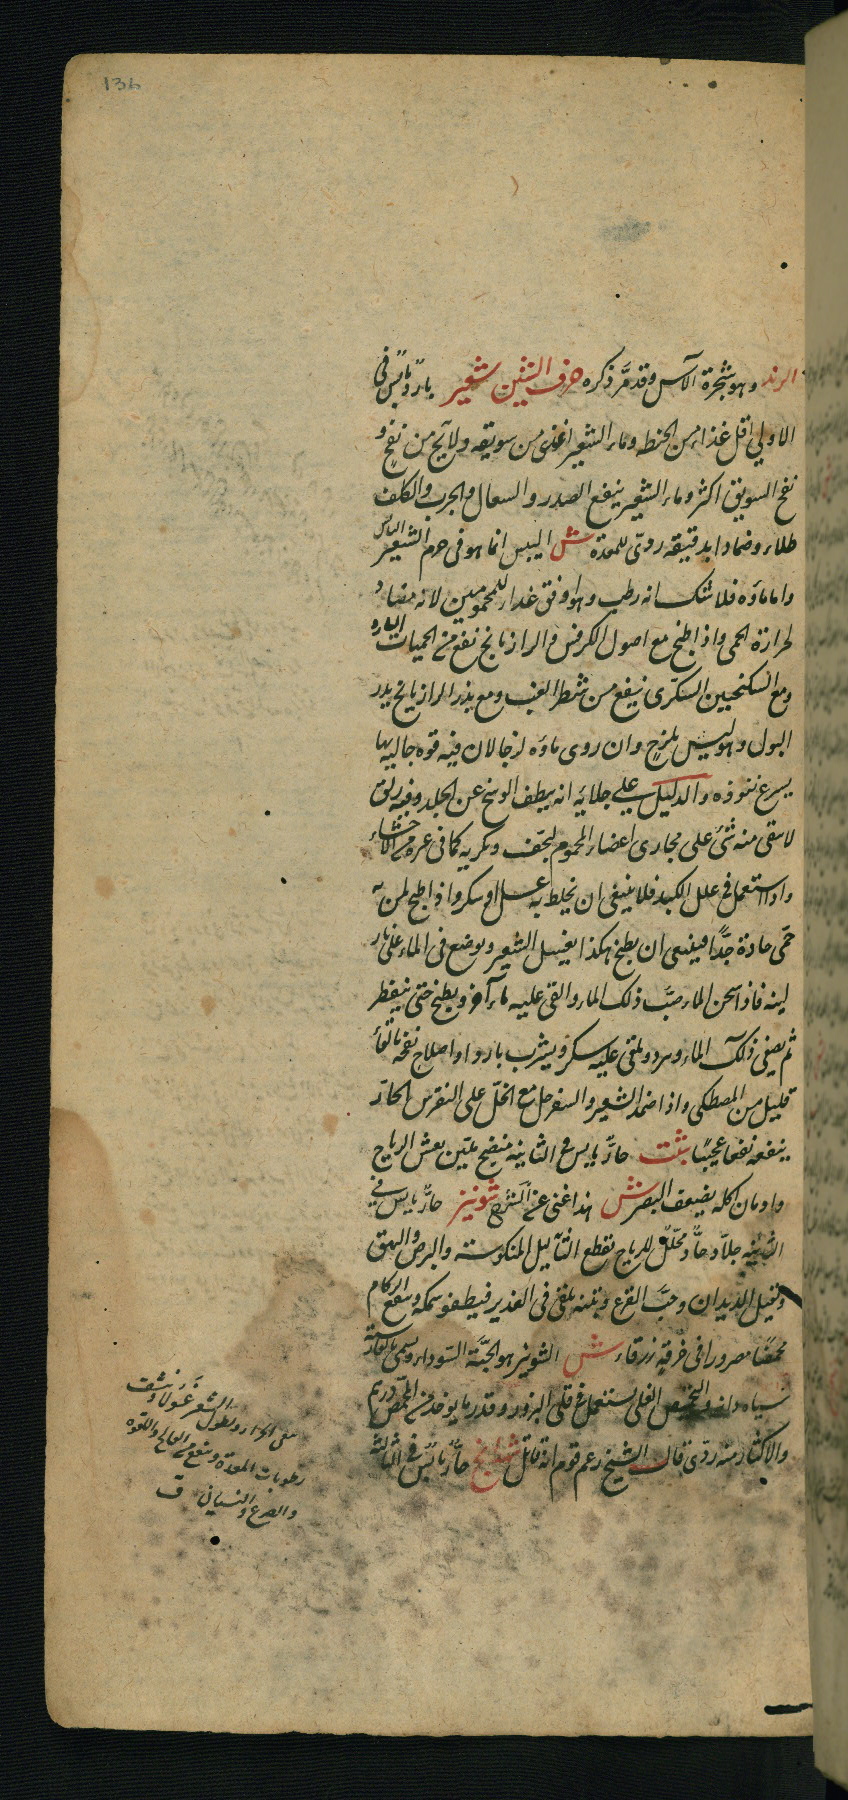 136
الرند وهو شجرة الآس وقد مر ذكره حرف الشين شعير بارد يابس فى
الاولى اقل غذاء من الحنطه وماء الشعير اغذى من سويقه ولا يخ من نفخ و
نفخ السويق اكثر وماء الشعير ينفع الصدر والسعال والجرب والكلف
طلاء وضمادا بدقيقه ردى للمعدة ش اليبس انما هو فى جرم الشعير اليابس
واما ماؤه فلا شك انه رطب وهو اوفق غذاء للمحمومين لانه مضاد
لحرارة الحمى واذا طبخ مع اصول الكرفس والرازيانج نفع من الحميات الباردة
ومع السكنجبين السكرى ينفع من شطر الغب ومع بذر الرازيانج يدر
البول وهو ليس بلزج وان روى ماؤه لزجا لان فيه قوه جاليه بها
يسرع نفوذه والدليل على جلائه انه ينظف الوسخ عن الجلد وفيه زلق
لا يبقى منه شئ على مجارى اعضاء المحموم ليجف ويكربه كما فى غيره من الاحشاء
واذا استعمل فى علل الكبد فلا ينبغى ان يخلط به عسل او سكر واذا طبخ لمن به
حمى حادة جدًا فينبغى ان يطبخ هكذا يغسل الشعير ويوضع فى الماء على نار
لينه فاذا سخن الماء صب ذلك الماء والقى عليه ماء آخر ويطبخ حتى يتفطر
ثم يصفى ذلك الماء ويبرد ويلقى عليه سكر ويشرب باردا واصلاح نفخه بالقاء
قليل من المصطكى واذا ضمد الشعير والسفرجل مع الخل على النقرس الحار
ينفعه نفعا عجيبًا شبث حار يابس فى الثانيه منضج ملين يفش الرياح
وادمان اكله يضعف البصر ش هذا غنى عن الشرح شونيز حار يابس فى
الثالثه جلاء حاد محلل للرياح يقطع الثآليل المنكوسة والبرص والبهق
ويقتل الديدان وحب القرع وثمنه يلقى فى الغدير فيطفو سمكه وينفع الزكام
محمصًا مصرورا فى خرقه زرقاء ش الشونيز هو الحبة السوداء ويسمى بالفارسية
سياه دانه والتحميص القلى يستعمل فى قلى البزور وقدر ما يؤخذ من المحمص درهم
والاكثار منه ردى قال الشيخ زعم قوم انه قاتل شهدانج حار يابس فى الثالثة
الشعر غسولا وينشف
رطوبات المعدة وينفع من الفالج واللقوه
والصرع والنسيان ق